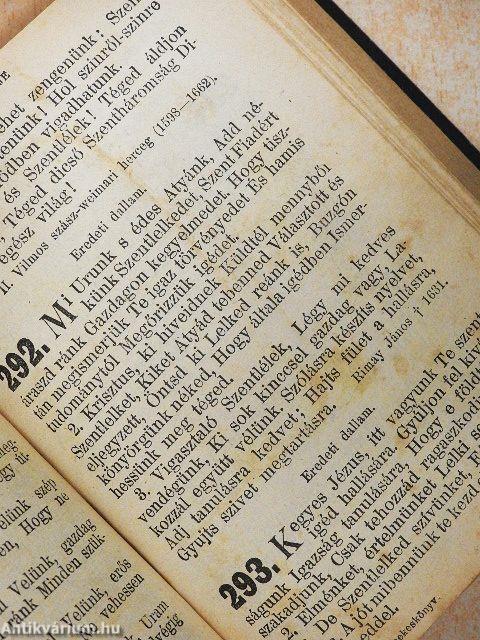 ehet zengenünk; Szent
enünk! Hol szinről-szinre
ödben vigadhatunk.
és Szentlélek! Téged áldjon
Téged dicső Szentháromság Di-
egész világ!
II. Vilmos szász-weimari herceg (1598—1662).
Eredeti dallam.
292. Mi Urunk s édes Atyánk, Add né-
künk Szentlelkedet, Szent Fiadért
áraszd ránk Gazdagon kegyelmedet, Hogy tisz-
tán megismerjük Te igaz törvényedet És hamis
tudománytól Megőrizzük igédet.
2. Krisztus, ki hiveidnek Küldtél mennyből
Szentlelket, Kiket Atyád tebenned Választott és
elegyzett, Öntsd ki Lelked reánk is, Buzgón
könyörgünk néked, Hogy általa igédben Ismer-
hessünk meg téged.
3. Vigasztaló Szentlélek, Légy mi kedves
vendégünk, Ki sok kinccsel gazdag vagy, La-
kozzál együtt vélünk; Szólásra készíts nyelvet,
Adj tanulásra kedvet; Hajts fület a hallásra,
Gyujts szívet megtartásra.
Rimay János † 1631.
Eredeti dallam.
293. Kegyes Jézus, itt vagyunk Te szent
igéd hallására, Gyúljon fel kí
ságunk Igazság tanulására, Hogy e földt
szakadjunk, Csak tehozzád ragaszkod
2. Elménket, értelmünket Lelki s
De Szentlelked szívünket, F
A jót mibennünk te kezd
eddel.
eskönyv.
Velünk szép
en, Hogy né
Velünk, gazdag
nk Minden szük-
Velünk, erős
vehessen
Uram
Antikvárium.hu